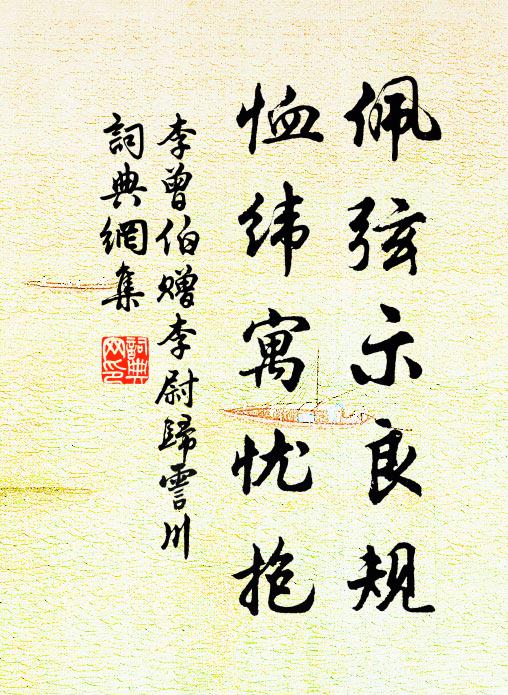 佩弦示良規
恤緯寓忧抱
李曾伯赠李尉歸雲川
詞典網集
詞典网印